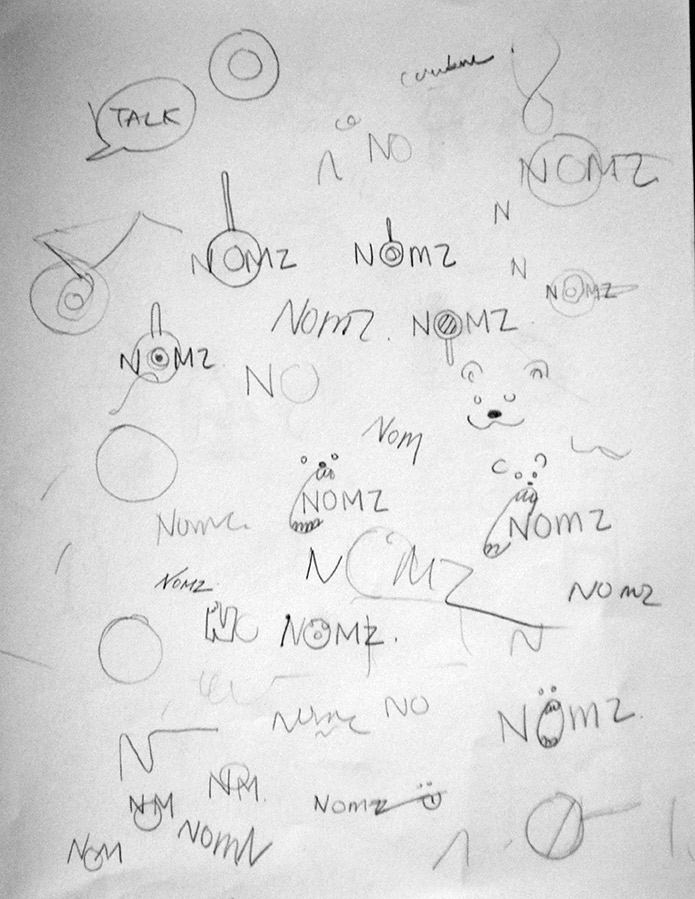 TALK
NO
NOMZ
N
NOMZ
NOMZ
N
NOMZ
NOMZ
NOMZ
NOMZ
NO
Nom
NOMZ
NOMZ
Nomz
NOMZ
NOMZ
NOMZ
NOMZ
N
NO
NÖMZ
N
NM
NM
NOMZ
NOM